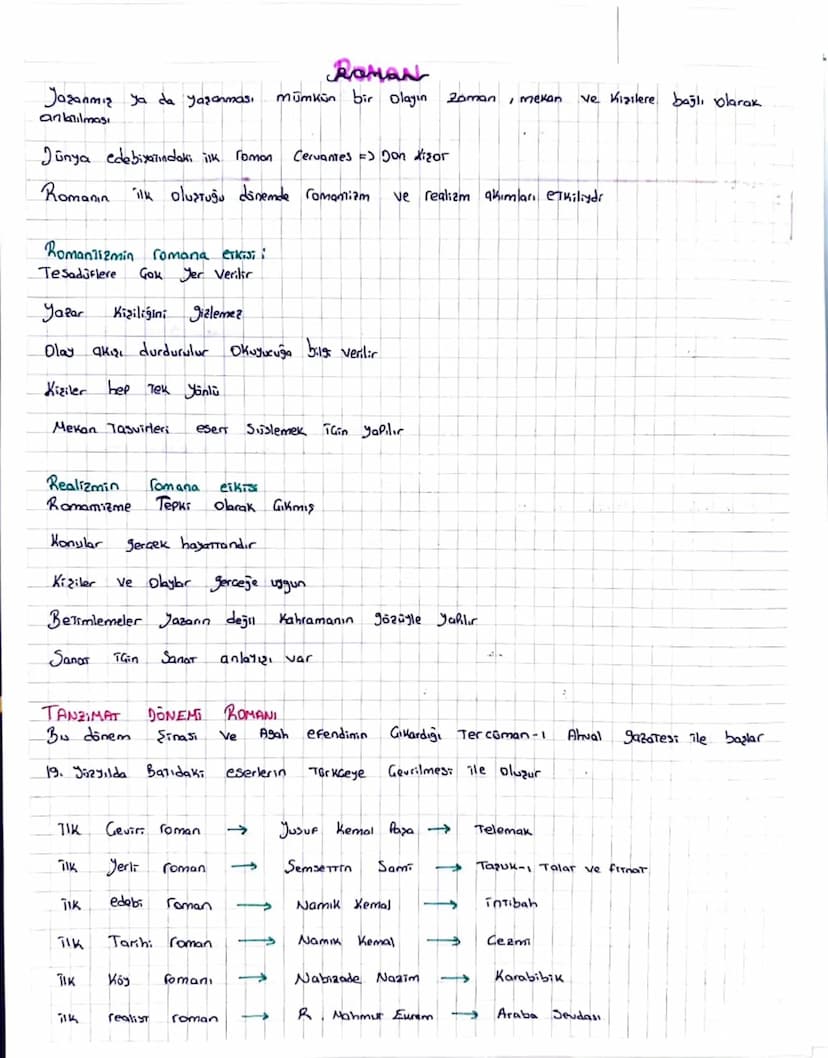 ROMAN
Yaşanmış ya da yaşanması mümkün bir olayın zaman, mekan ve kişilere bağlı olarak
anlatılması
Dünya edebiyatındaki ilk roman Cervantes => Don Kişot
Romanın ilk oluştuğu dönemde romantizm ve realizm akımları etkiliydi
Romantizmin romana etkisi:
Tesadüflere çok yer verilir
Yazar kişiliğini gizlemez
Olay akışı durdurulur okuyucuğa bilgi verilir
Kişiler hep tek yönlü
Mekan tasvirleri eseri süslemek için yapılır
Realizmin romana etkisi
Romamizme tepki olarak çıkmış
Konular gerçek hayattandır
Kişiler ve olaylar gerçeğe uygun
Betimlemeler yazarın değil kahramanın gözüyle yapılır
Sanat için sanat anlayışı var
TANZİMAT DÖNEMİ ROMANI
Bu dönem Şinasi ve Agah efendinin çıkardığı Tercüman-ı Ahval gazatesi ile başlar
19. yüzyılda Batıdaki eserlerin Türkçeye çevrilmesi ile oluşur
İlk çeviri roman → Yusuf Kemal Paşa → Telemak
ilk yerli roman → Şemsettin Sami → Taşuk-ı Talat ve fitnat
ilk edebi roman → Namık Kemal → intibah
ilk Tarihi roman → Namık Kemal → Cezmi
ilk köy romanı → Nabizade Nazım → Karabibik
ilk realist roman → R. Mahmut Eurem → Araba Sevdası